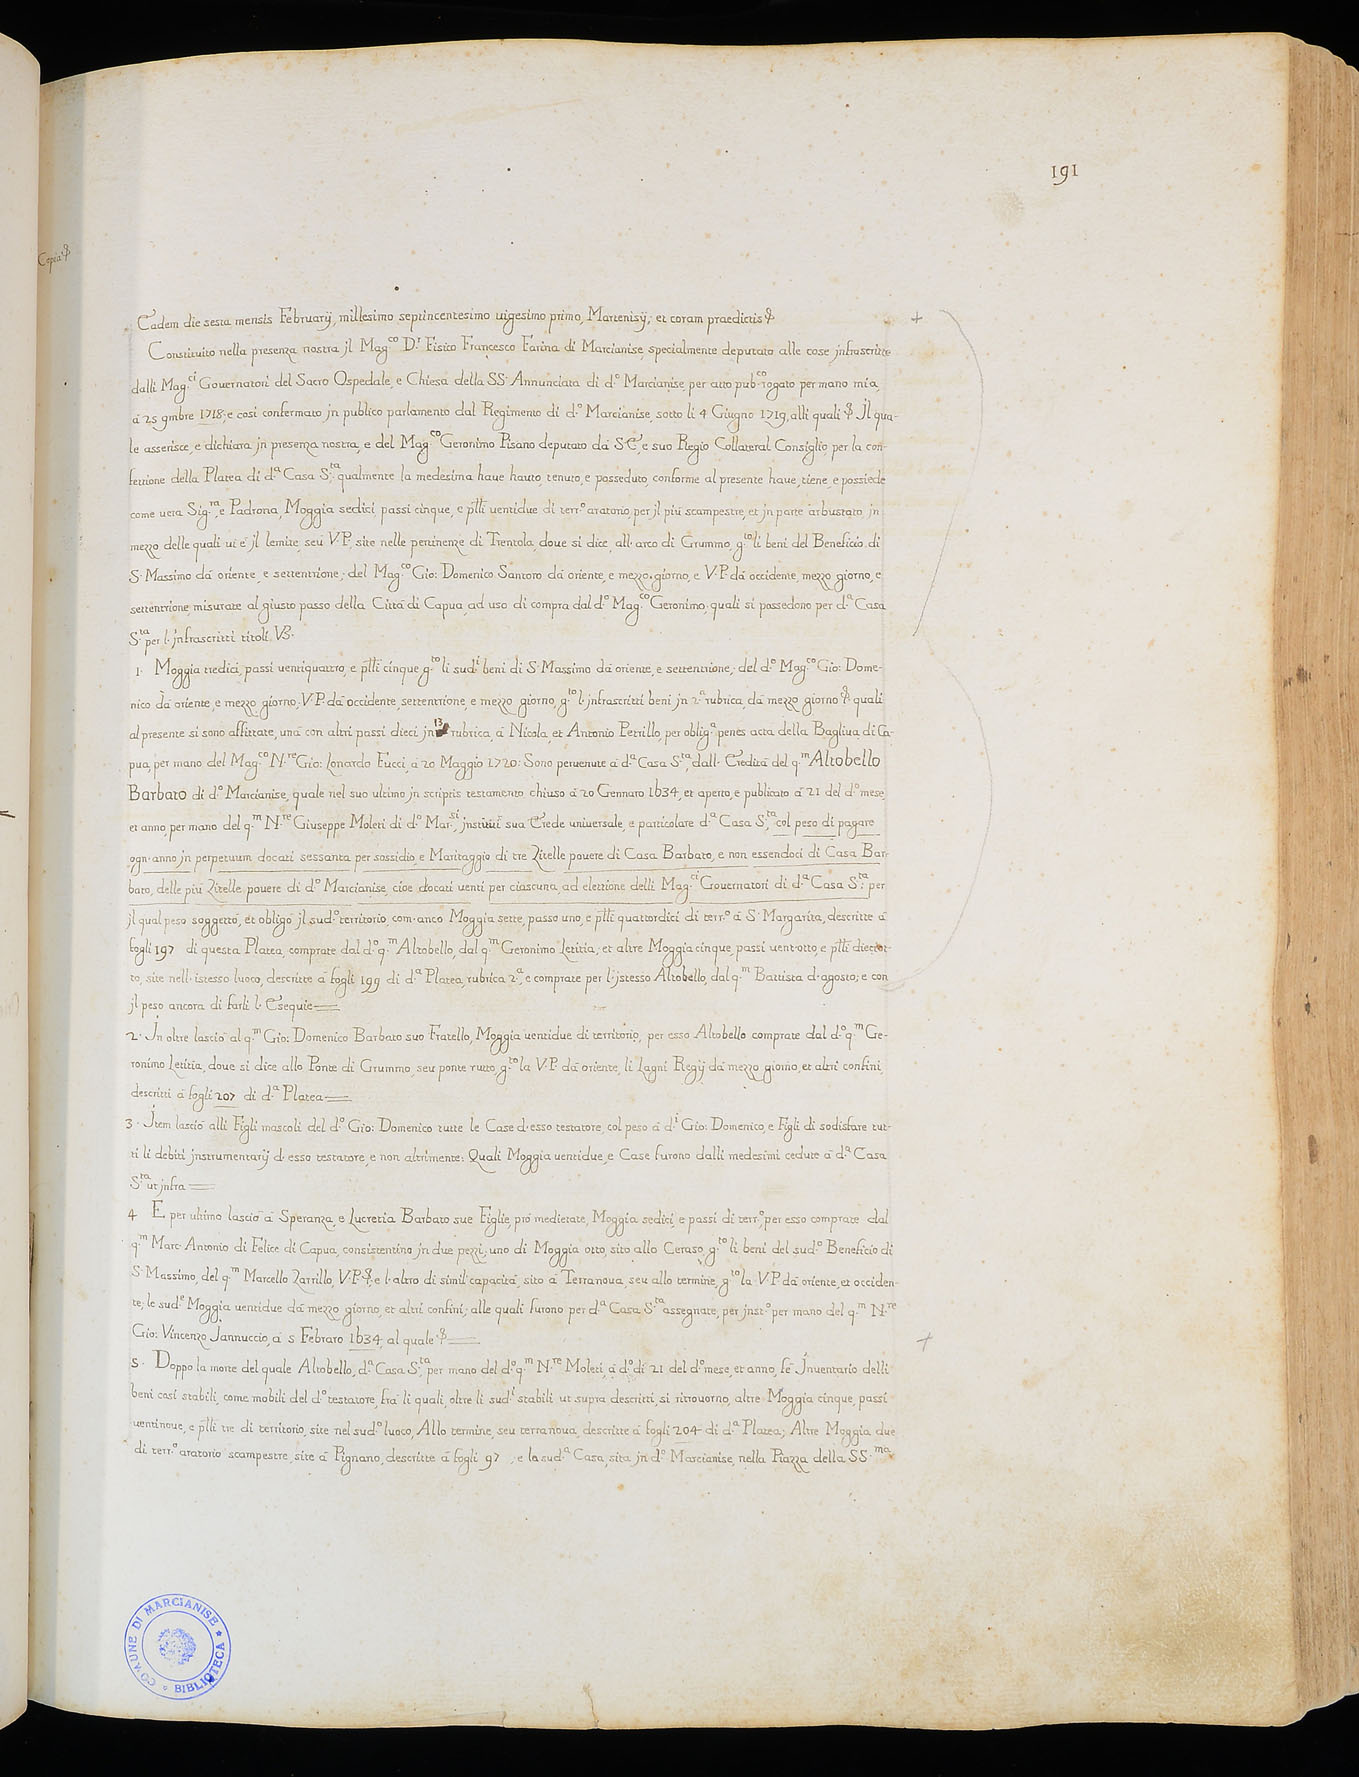 191
Copia
Eadem die sexta mensis Februarij, millesimo septincentesimo uigesimo primo, Martenisij; et coram praedictis &
Constituito nella presenza nostra jl Mag.co D.r Fisico Francesco Farina di Marcianise, specialmente deputato alle cose jnfrascritte
dalli Mag.ci Gouernatori del Sacro Ospedale, e Chiesa della SS. Annunciata di d.o Marcianise, per atto pub.co rogato per mano mia,
à 25 9mbre 1718; e così confermato jn publico parlamento dal Regimento di d.o Marcianise, sotto li 4 Giugno 1719, alli quali &. Jl qua-
le asserisce, e dichiara jn presenza nostra, e del Mag.co Geronimo Pisano deputato dà S.E., e suo Regio Collateral Consiglio per la con-
fettione della Platea di d.a Casa S.ta, qualmente la medesima haue hauto, tenuto, e posseduto, conforme al presente haue, tiene, e possiede
come uera Sig.ra, e Padrona, Moggia sedici passi cinque, e p̃lli uentidue di terr.o aratorio, per jl più scampestre, et jn parte arbustato, jn
mezzo delle quali ui è jl lemite, seu V.P., site nelle pertinenze di Trentola, doue si dice, all'arco di Grummo, g.to li beni del Beneficio di
S. Massimo dà oriente, e settentrione; del Mag.co Gio: Domenico Santoro dà oriente, e mezzo giorno, e V.P. dà occidente, mezzo giorno, e
settentrione, misurate al giusto passo della Città di Capua, ad uso di compra dal d.o Mag.co Geronimo; quali si possedono per d.a Casa
S.ta per l'jnfrascritti titoli V3.
1. Moggia tredici, passi uentiquattro, e p̃lli cinque g.to li sud.i beni di S. Massimo dà oriente, e settentrione; del d.o Mag.co Gio: Dome-
nico dà oriente, e mezzo giorno; V.P. dà occidente, settentrione, e mezzo giorno, g.to l'jnfrascritti beni jn 2.a rubrica, dà mezzo giorno &. quali
al presente si sono affittate, una con altri passi dieci jn 13 rubrica, à Nicola, et Antonio Petrillo, per oblig.a penes acta della Bagliua di Ca-
pua, per mano del Mag.co N.re Gio: Lonardo Fucci, à 20 Maggio 1720: Sono peruenute à d.a Casa S.ta, dall'Eredità del q.m Altobello
Barbato di d.o Marcianise, quale nel suo ultimo jn scriptis testamento chiuso à 20 Gennaro 1634, et aperto, e publicato à 21 del d.o mese,
et anno, per mano del q.m N.re Giuseppe Moleti di d.o Mar.si, jnstituì sua Erede uniuersale, e particolare d.a Casa S.ta, col peso di pagare
ogn'anno jn perpetuum docati sessanta per sossidio, e Maritaggio di tre Zitelle pouere di Casa Barbato, e non essendoci di Casa Bar-
bato, delle più Zitelle pouere di d.o Marcianise, cioè docati uenti per ciascuna, ad elettione delli Mag.ci Gouernatori di d.a Casa S.ta: per
jl qual peso soggettò, et obligò jl sud.o territorio, com'anco Moggia sette, passo uno, e p̃lli quattordici di terr.o à S. Margarita, descritte à
fogli 197 di questa Platea, comprate dal d.o q.m Altobello, dal q.m Geronimo Letitia; et altre Moggia cinque, passi uent'otto, e p̃lli dieciot-
to, site nell'istesso luoco, descritte à fogli 199 di d.a Platea, rubrica 2.a, e comprate per l'jstesso Altobello, dal q.m Battista d'agosto; e con
jl peso ancora di farli l'Esequie
2. Jn oltre lasciò al q.m Gio: Domenico Barbato suo Fratello, Moggia uentidue di territorio, per esso Altobello comprate dal d.o q.m Ge-
ronimo Letitia, doue si dice allo Ponte di Grummo, seu ponte rutto, g.to la V.P. dà oriente, li Lagni Regij dà mezzo giorno, et altri confini,
descritti à fogli 207 di d.a Platea
3. Jtem lasciò alli Figli mascoli del d.o Gio: Domenico tutte le Case d'esso testatore, col peso à d.i Gio: Domenico, e Figli di sodisfare tut-
ti li debiti jnstrumentarij d'esso testatore, e non altrimente: Quali Moggia uentidue, e Case furono dalli medesimi cedute à d.a Casa
S.ta ut jnfra
4 E per ultimo lasciò à Speranza, e Lucretia Barbato sue Figlie, prò medietate, Moggia sedici, e passi di terr.o, per esso comprate dal
q.m Marc'Antonio di Felice di Capua, consistentino jn due pezzi; uno di Moggia otto, sito allo Ceraso, g.to li beni del sud.o Beneficio di
S. Massimo, del q.m Marcello Zarrillo, V.P. &; e l'altro di simil capacità, sito à Terranoua, seu allo termine, g.to la V.P. dà oriente, et occiden-
te; le sud.e Moggia uentidue dà mezzo giorno, et altri confini; alle quali furono per d.a Casa S.ta assegnate, per jnst.o per mano del q.m N.re
Gio: Vincenzo Jannuccio, à 5 Febraro 1634, al quale &
5. Doppo la morte del quale Altobello, d.a Casa S.ta, per mano del d.o q.m N.re Moleti, à d.o dì 21 del d.o mese, et anno, fè Jnuentario delli
beni così stabili, come mobili del d.o testatore, frà li quali, oltre li sud.i stabili ut supra descritti, si ritrouorno, altre Moggia cinque, passi
uentinoue, e p̃lli tre di territorio, site nel sud.o luoco, Allo termine, seu terranoua, descritte à fogli 204 di d.a Platea; Altre Moggia due
di terr.o aratorio scampestre, site à Pignano, descritte à fogli 97 ; e la sud.a Casa, sita jn d.o Marcianise, nella Piazza della SS.ma
COMUNE DI MARCIANISE * BIBLIOTECA